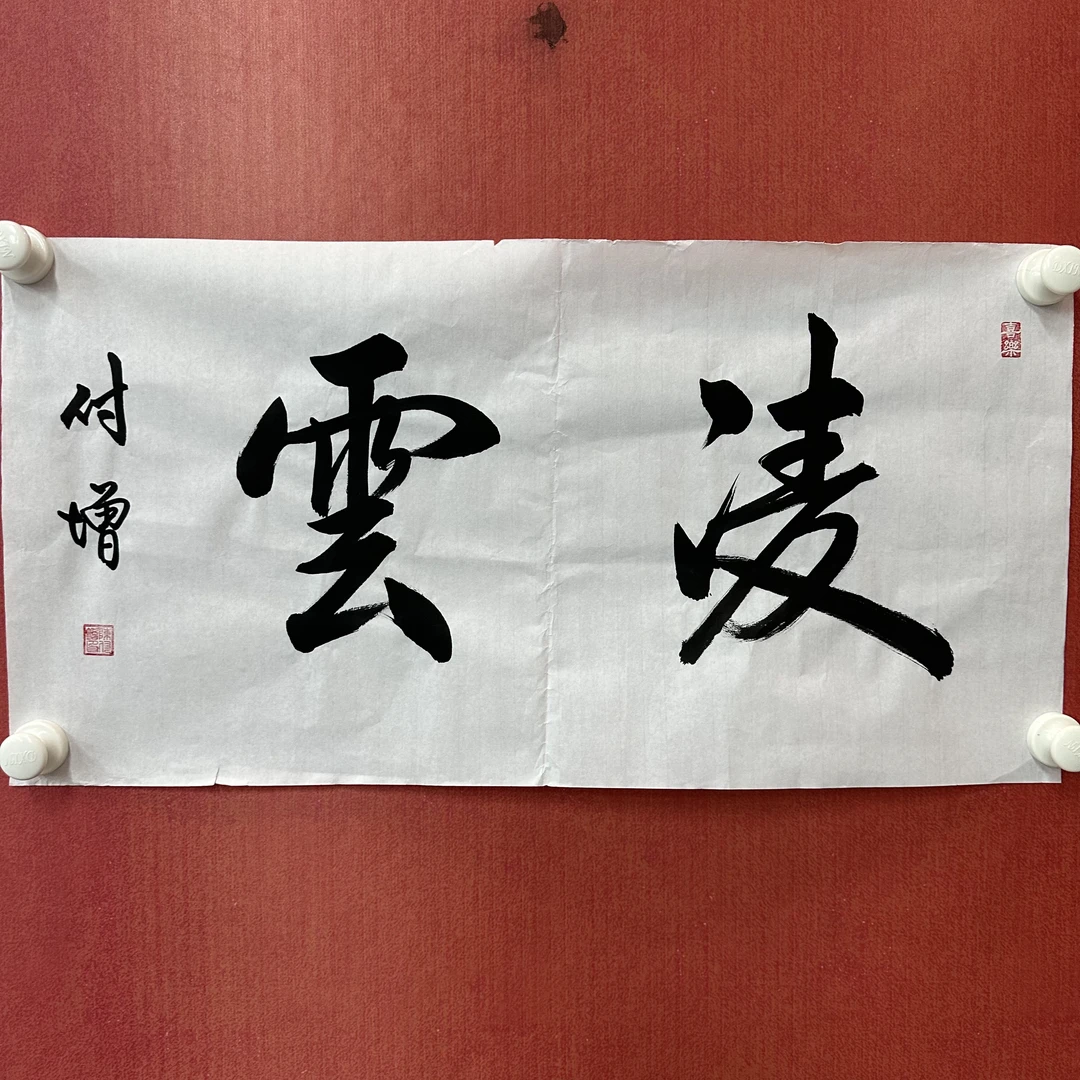 凌雲
付增
喜樂